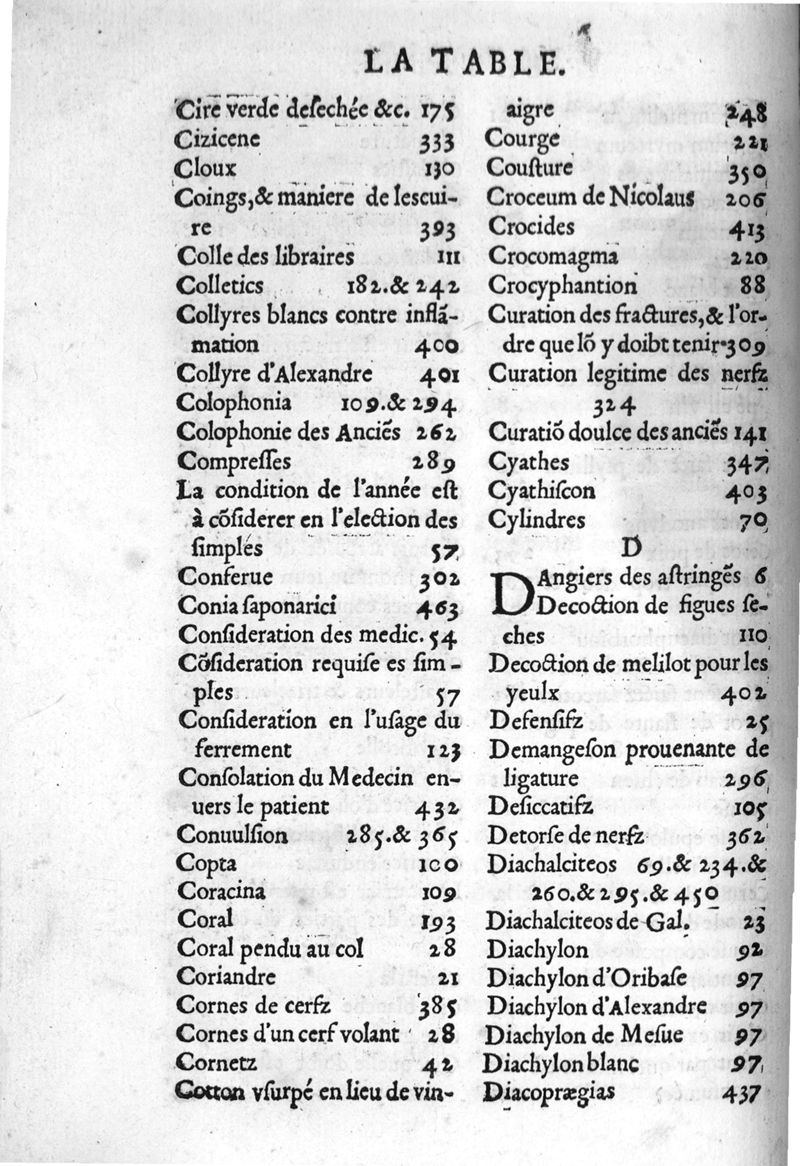 LA TABLE.
Cire verde deſechée &c. 175
Cizicene 333
Cloux 130
Coings,& maniere de leſcui-
re 393
Colle des libraires 111
Colletics 182.& 242
Collyres blancs contre inflā-
mation 400
Collyre d'Alexandre 401
Colophonia 109.& 294
Colophonie des Anciẽs 262
Compreſſes 289
La condition de l'année eſt
à cōſiderer en l'election des
ſimples 57
Conferue 302
Conia ſaponarici 463
Conſideration des medic. 54
Cōſideration requiſe es ſim-
ples 57
Conſideration en l'uſage du
ferrement 123
Conſolation du Medecin en-
uers le patient 432
Conuulſion 285.& 365
Copta 100
Coracina 109
Coral 193
Coral pendu au col 28
Coriandre 21
Cornes de cerfz 385
Cornes d'un cerf volant 28
Cornetz 42
Cotton vſurpé en lieu de vin-
aigre 248
Courge 221
Couſture 350
Croceum de Nicolaus 206
Crocides 413
Crocomagma 220
Crocyphantion 88
Curation des fractures,& l'or-
dre que lō y doibt tenir 309
Curation legitime des nerfz
324
Curatiō doulce des anciẽs 141
Cyathes 347
Cyathiſcon 403
Cylindres 70
D
DAngiers des aſtringẽs 6
Decoction de figues ſe-
ches 110
Decoction de melilot pour les
yeulx 402
Defenſifz 25
Demangeſon prouenante de
ligature 296
Deſiccatifz 105
Detorſe de nerfz 362
Diachalciteos 69.& 234.&
260.& 295.& 450
Diachalciteos de Gal. 23
Diachylon 92
Diachylon d'Oribaſe 97
Diachylon d'Alexandre 97
Diachylon de Meſue 97
Diachylon blanc 97
Diacoprægias 437